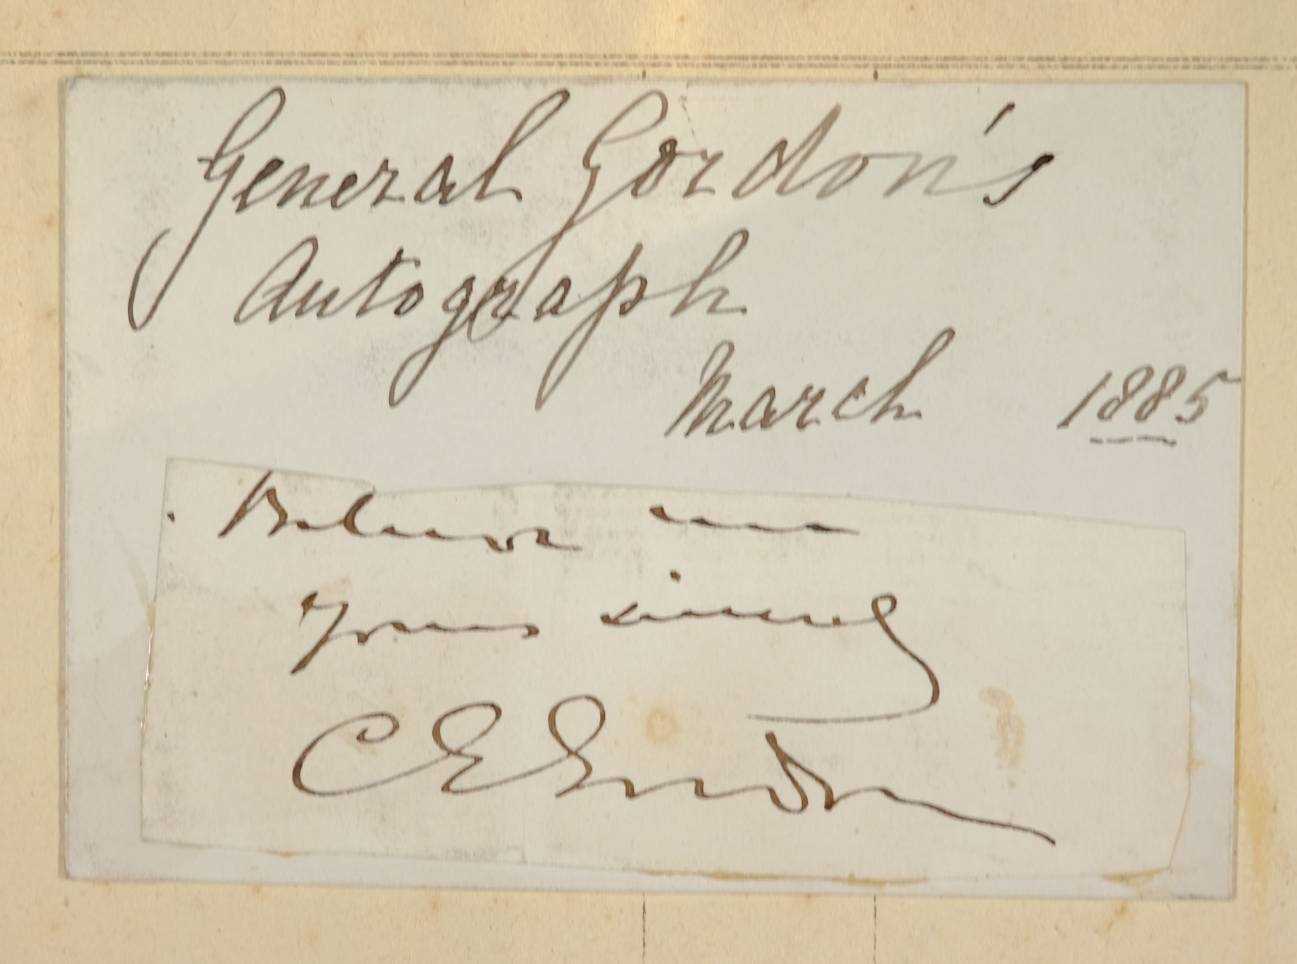 General Gordon's
Autograph
March 1885
Believe me
Yours sincerely
C E Gordon